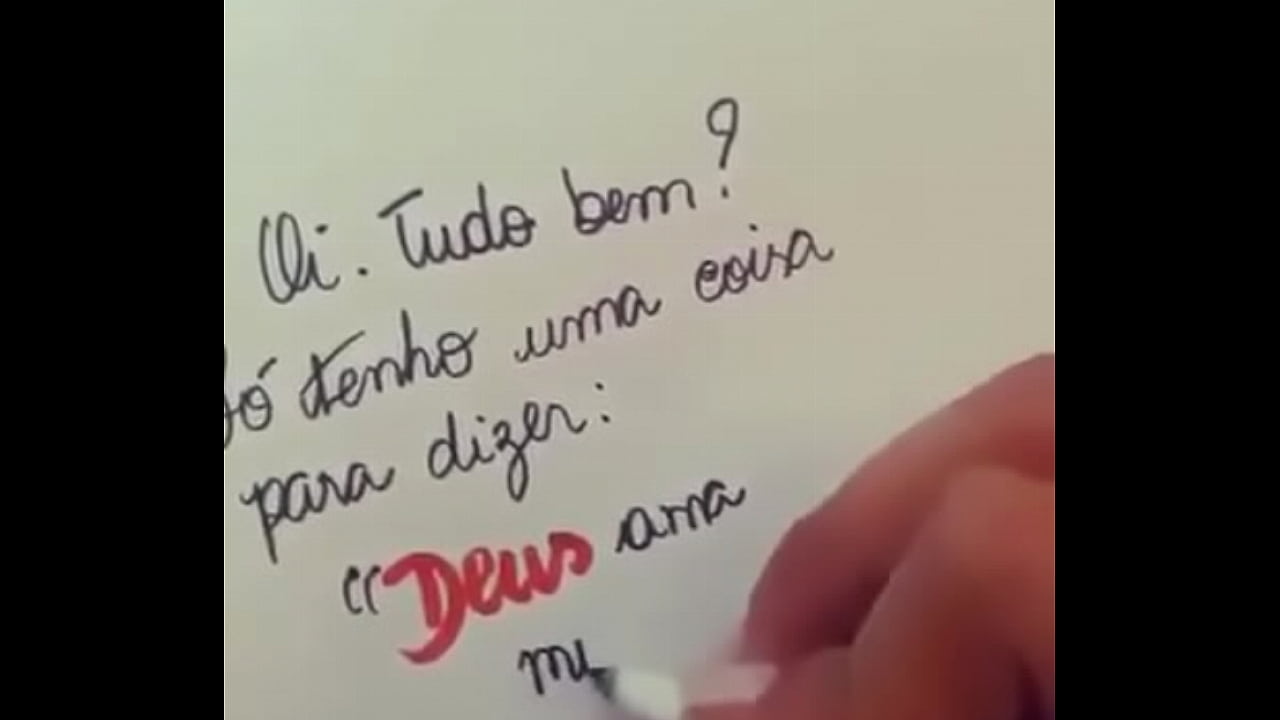 Oi. Tudo bem?
Só tenho uma coisa
para dizer:
"Deus ama
mu